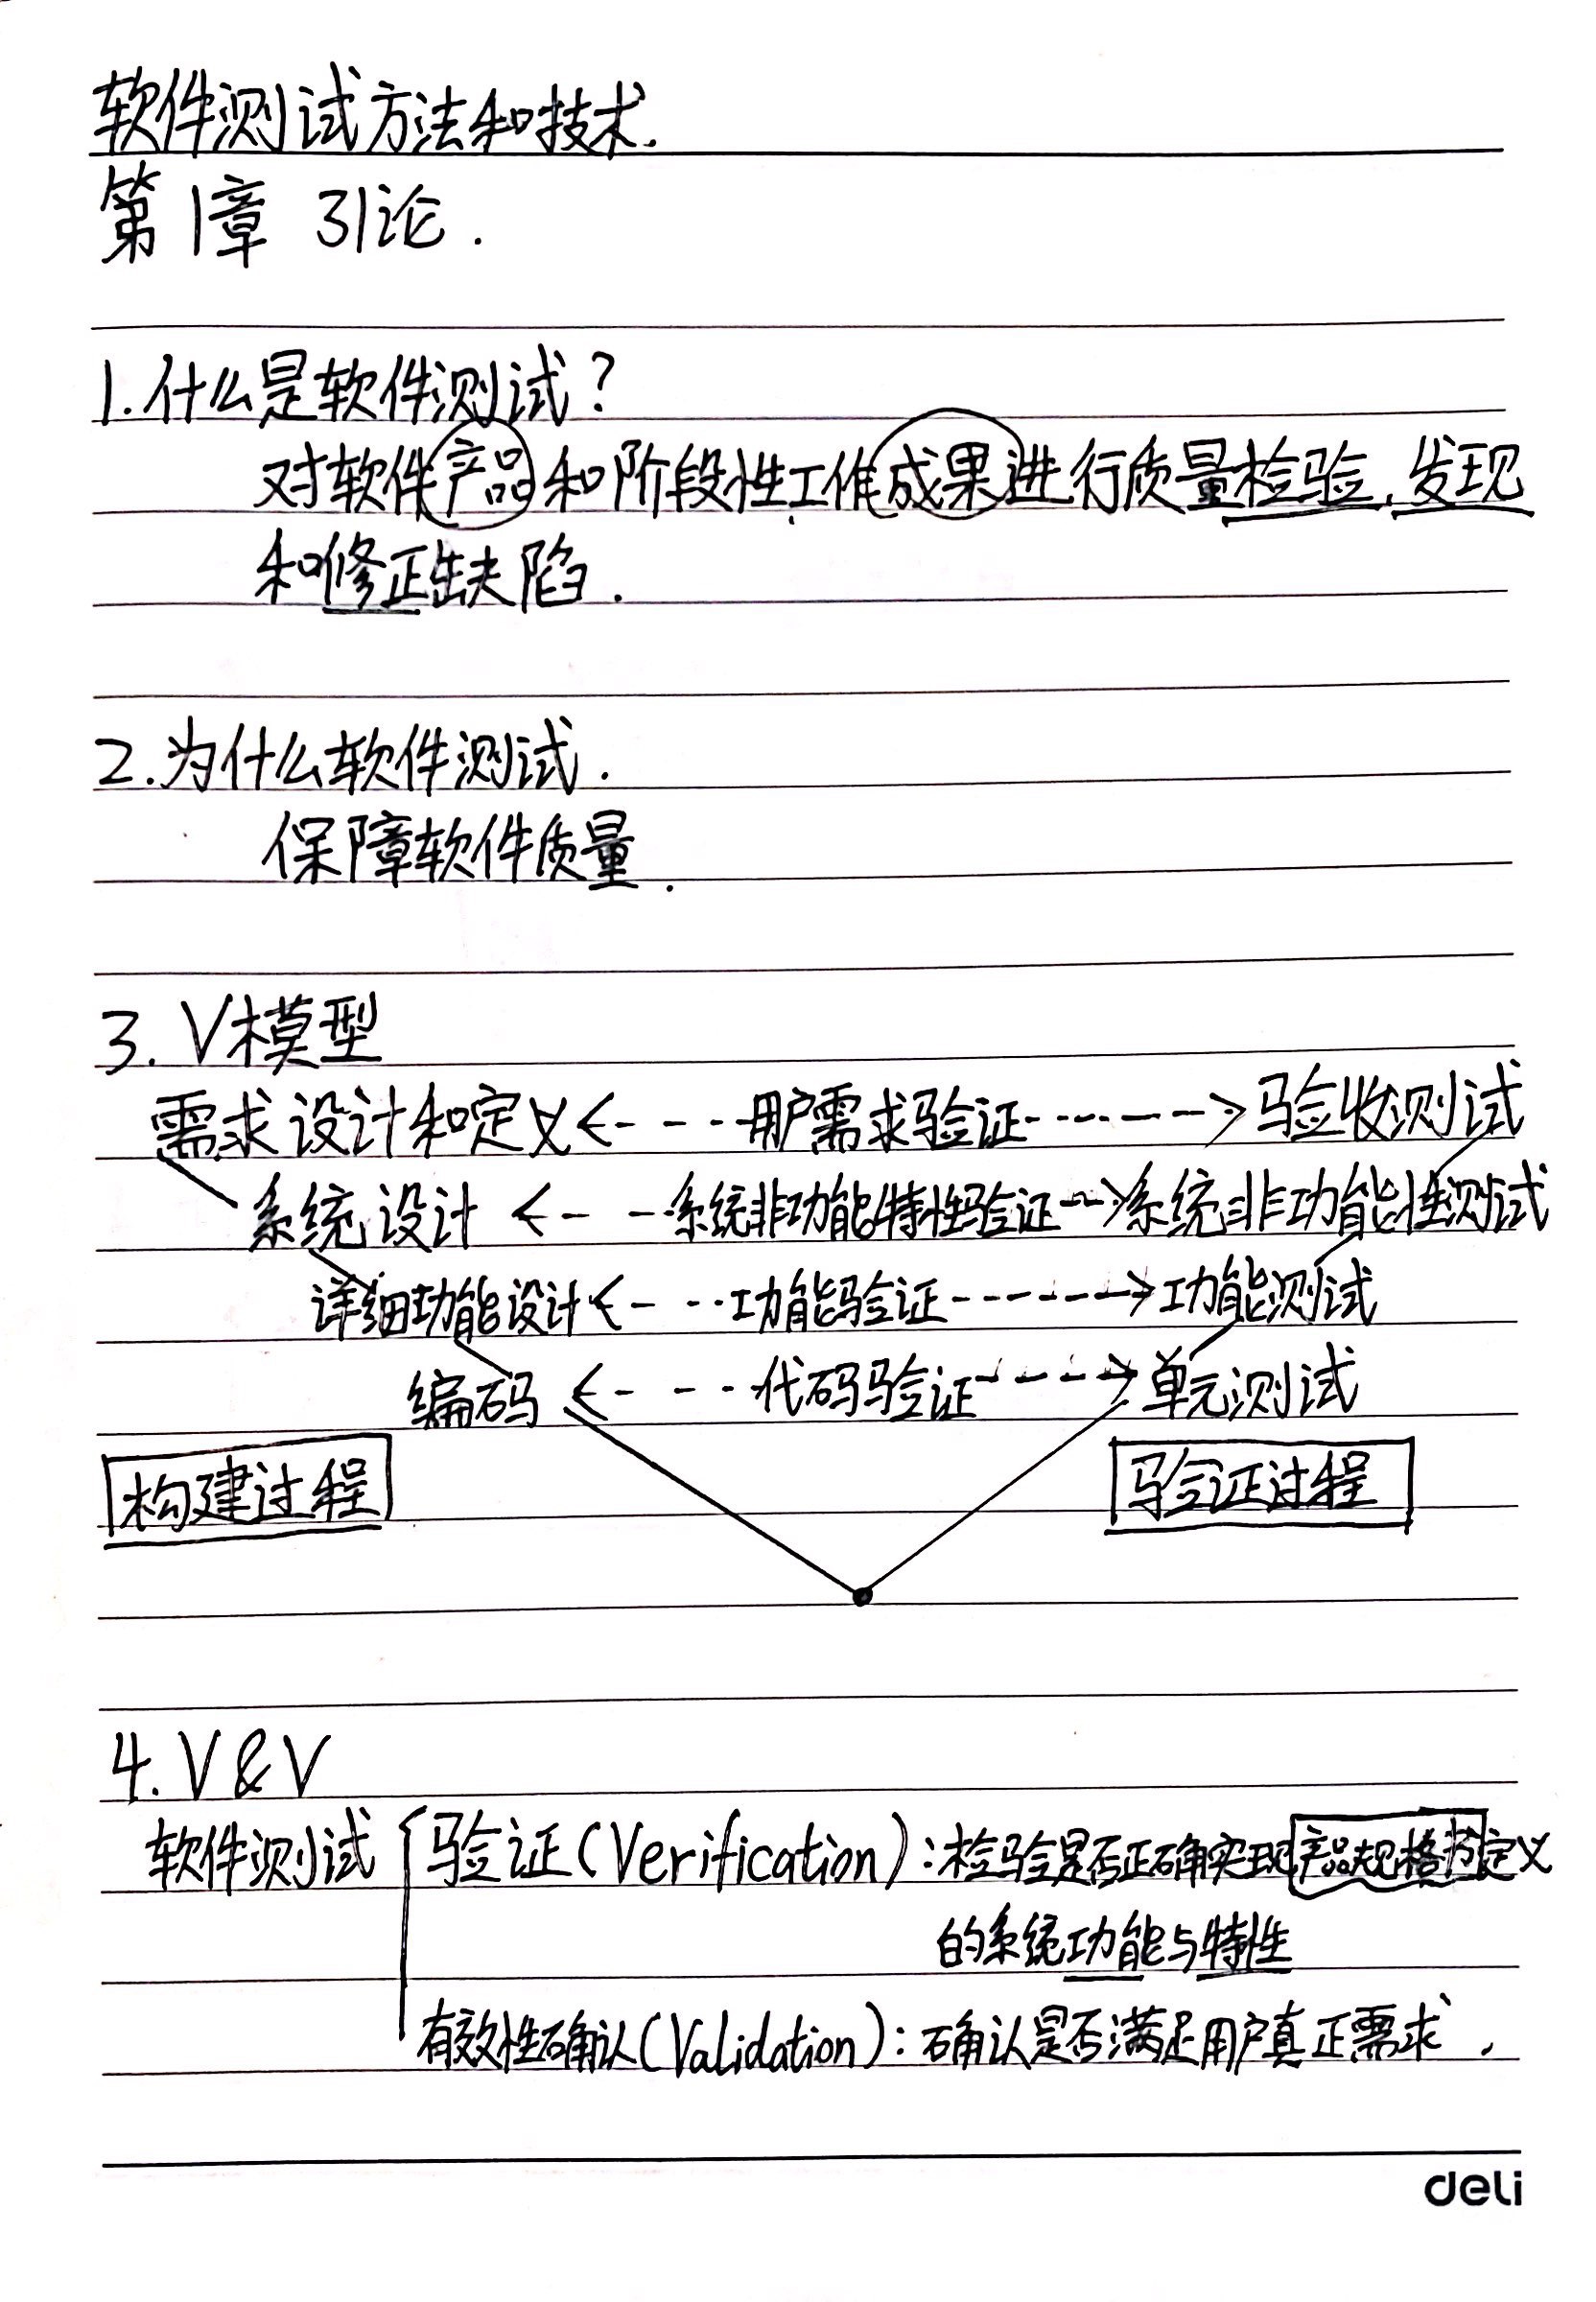 软件测试方法和技术.
第1章 引论.
1.什么是软件测试?
对软件产品和阶段性工作成果进行质量检验,发现
和修正缺陷.
2.为什么软件测试.
保障软件质量.
3.V模型
需求设计和定义<----用户需求验证------->验收测试
系统设计<----系统非功能特性验证-->系统非功能性测试
详细功能设计<----功能验证------->功能测试
编码<----代码验证----->单元测试
构建过程 验证过程
4.V&V
软件测试 验证(Verification):检验是否正确实现产品规格书定义
的系统功能与特性
有效性确认(Validation):确认是否满足用户真正需求.
deli